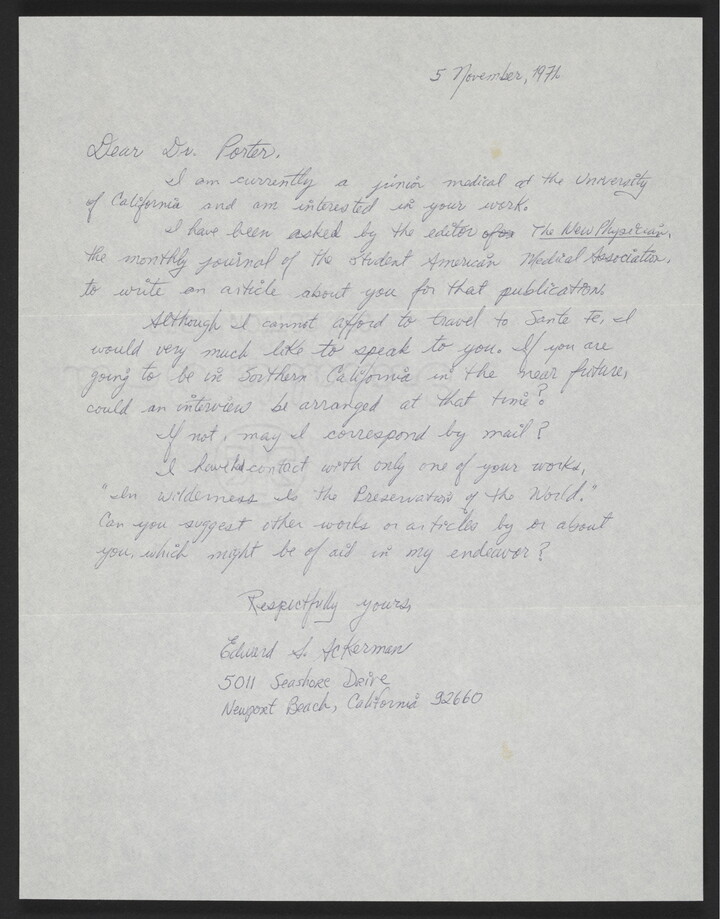 5 November, 1971
Dear Dr. Porter.
I am currently a junior medical at the University
of California and am interested in your work.
I have been asked by the editor of The New Physician,
the monthly journal of the Student American Medical Association,
to write an article about you for that publication.
Although I cannot afford to travel to Sante Fe, I
would very much like to speak to you. If you are
going to be in Southern California in the near future,
could an interview be arranged at that time?
If not, may I correspond by mail?
I have had contact with only one of your works,
"In Wilderness Is the Preservation of the World."
Can you suggest other works or articles by or about
you, which might be of aid in my endeavor?
Respectfully yours,
Edward S. Ackerman
5011 Seashore Drive
Newport Beach, California 92660